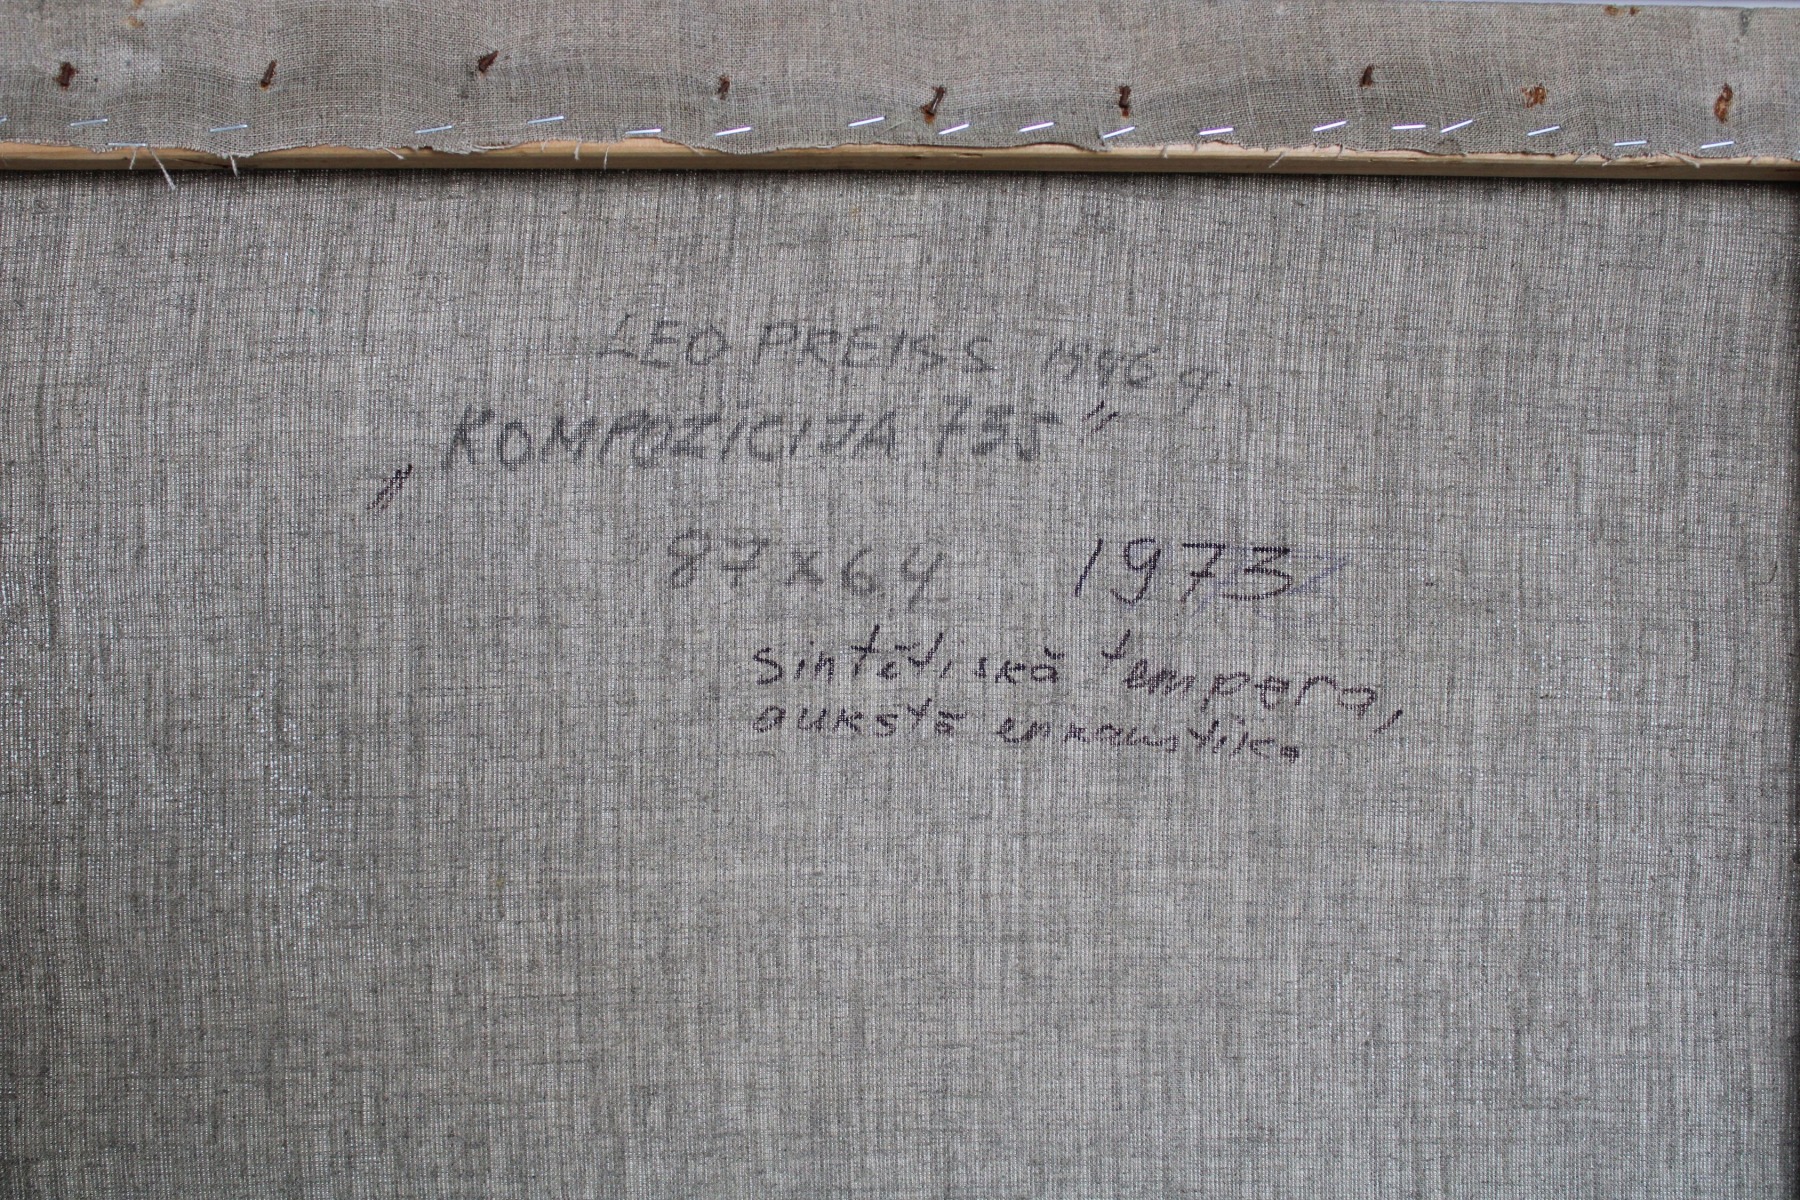 LEO PREISS 1946 g.
„KOMPOZĪCIJA 735"
87x64 1973
sintētiskā tempera,
aukstā enkaustika